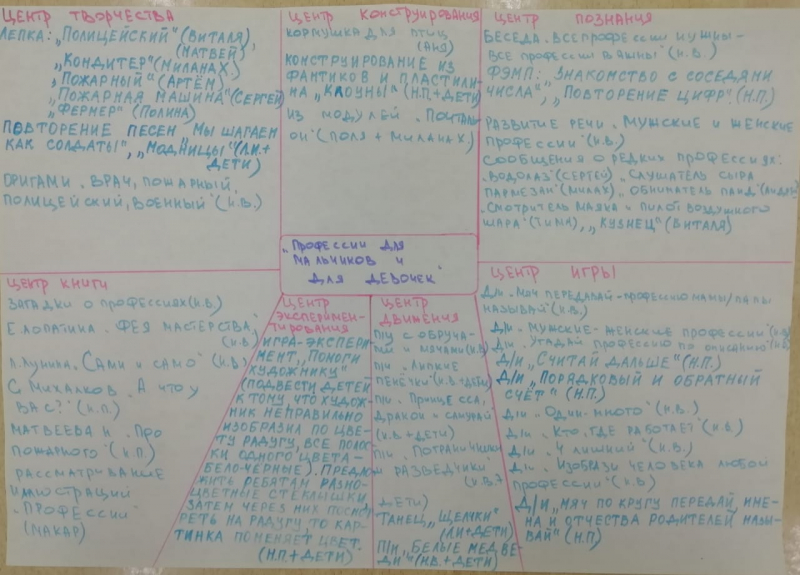 ЦЕНТР ТВОРЧЕСТВА
ЛЕПКА: „ПОЛИЦЕЙСКИЙ“ (ВИТАЛЯ)
(МАТВЕЙ),
„КОНДИТЕР“ (МИЛАНА Х.)
„ПОЖАРНЫЙ“ (АРТЁМ)
„ПОЖАРНАЯ МАШИНА“ (СЕРГЕЙ)
„ФЕРМЕР“ (ПОЛИНА)
ПОВТОРЕНИЕ ПЕСЕН „МЫ ШАГАЕМ
КАК СОЛДАТЫ“, „МОДНИЦЫ“ (Л.И.+
ДЕТИ)
ОРИГАМИ „ВРАЧ, ПОЖАРНЫЙ,
ПОЛИЦЕЙСКИЙ, ВОЕННЫЙ“ (Н.В.)
ЦЕНТР КОНСТРУИРОВАНИЯ
КОРМУШКА ДЛЯ ПТИЦ
(АНЯ)
КОНСТРУИРОВАНИЕ ИЗ
ФАНТИКОВ И ПЛАСТИЛИ-
НА „КЛОУНЫ“ (Н.П.+ДЕТИ)
ИЗ МОДУЛЕЙ „ПОЧТАЛЬ-
ОН“ (ПОЛЯ + МИЛАНА Х.)
ЦЕНТР ПОЗНАНИЯ
БЕСЕДА „ВСЕ ПРОФЕССИИ НУЖНЫ-
ВСЕ ПРОФЕССИИ ВАЖНЫ“ (Н.В.)
ФЭМП: „ЗНАКОМСТВО С СОСЕДЯМИ
ЧИСЛА“, „ПОВТОРЕНИЕ ЦИФР“ (Н.П.)
РАЗВИТИЕ РЕЧИ „МУЖСКИЕ И ЖЕНСКИЕ
ПРОФЕССИИ“ (Н.В.)
СООБЩЕНИЯ О РЕДКИХ ПРОФЕССИЯХ:
„ВОДОЛАЗ“ (СЕРГЕЙ) „СЛУШАТЕЛЬ СЫРА
ПАРМЕЗАН“ (МИЛАХ) „ОБНИМАТЕЛЬ ПАНД“
„СМОТРИТЕЛЬ МАЯКА И ПИЛОТ ВОЗДУШНОГО
ШАРА“ (ТИМА), „КУЗНЕЦ“ (ВИТАЛЯ)
„ПРОФЕССИИ ДЛЯ
МАЛЬЧИКОВ И
ДЛЯ ДЕВОЧЕК“
ЦЕНТР КНИГИ
ЗАГАДКИ О ПРОФЕССИЯХ (Н.В.)
Е. ЛОПАТИНА „ФЕЯ МАСТЕРСТВА“
(Н.В.)
Л. КУНИНА „САМИ И САМО“ (Н.В.)
С МИХАЛКОВ „А ЧТО У
ВАС?“ (Н.П.)
МАТВЕЕВА Н. „ПРО
ПОЖАРНОГО“ (Н.П.)
РАССМАТРИВАНИЕ
ИЛЛЮСТРАЦИЙ
„ПРОФЕССИИ“
(МАКАР)
ЦЕНТР
ЭКСПЕРИМЕН-
ТИРОВАНИЯ
ИГРА-ЭКСПЕРИ-
МЕНТ „ПОМОГИ
ХУДОЖНИКУ“
(ПОДВЕСТИ ДЕТЕЙ
К ТОМУ, ЧТО ХУДОЖ-
НИК НЕПРАВИЛЬНО
ИЗОБРАЗИЛ ПО ЦВЕ-
ТУ РАДУГУ, ВСЕ ПОЛОС-
КИ ОДНОГО ЦВЕТА-
БЕЛО-ЧЁРНЫЕ). ПРЕДЛО-
ЖИТЬ РЕБЯТАМ РАЗНО-
ЦВЕТНЫЕ СТЁКЛЫШКИ
ЗАТЕМ ЧЕРЕЗ НИХ ПОСМОТ-
РЕТЬ НА РАДУГУ, ТО КАР-
ТИНКА ПОМЕНЯЕТ ЦВЕТ.
(Н.П.+ДЕТИ)
ЦЕНТР
ДВИЖЕНИЯ
П/У С ОБРУЧА-
МИ И МЯЧАМИ (Н.В)
П/И „ЛИПКИЕ
ПЕНЕЧКИ“ (Н.В.+ДЕТИ)
П/И „ПРИНЦЕССА,
ДРАКОН И САМУРАЙ“
(Н.В.+ДЕТИ)
П/И „ПОГРАНИЧНИКИ
И РАЗВЕДЧИКИ“
(Н.В.+
ДЕТИ)
ТАНЕЦ „ЩЕЛЧКИ“
(ЛИ+ДЕТИ)
П/И „БЕЛЫЕ МЕДВЕ-
ДИ“ (Н.В.+ДЕТИ)
ЦЕНТР ИГРЫ
Д/И „МЯЧ ПЕРЕДАВАЙ-ПРОФЕССИЮ МАМЫ/ПАПЫ
НАЗЫВАЙ“ (Н.В.)
Д/И „МУЖСКИЕ-ЖЕНСКИЕ ПРОФЕССИИ“ (Н.В)
Д/И „УГАДАЙ ПРОФЕССИЮ ПО ОПИСАНИЮ“ (Н.В)
Д/И „СЧИТАЙ ДАЛЬШЕ“ (Н.П.)
Д/И „ПОРЯДКОВЫЙ И ОБРАТНЫЙ
СЧЁТ“ (Н.П.)
Д/И „ОДИН-МНОГО“ (Н.В.)
Д/И „КТО, ГДЕ РАБОТАЕТ“ (Н.В.)
Д/И „4 ЛИШНИЙ“ (Н.В.)
Д/И „ИЗОБРАЗИ ЧЕЛОВЕКА ЛЮБОЙ
ПРОФЕССИИ“ (Н.В)
Д/И „МЯЧ ПО КРУГУ ПЕРЕДАЙ, ИМЕ-
НА И ОТЧЕСТВА РОДИТЕЛЕЙ НАЗЫ-
ВАЙ“ (Н.П)